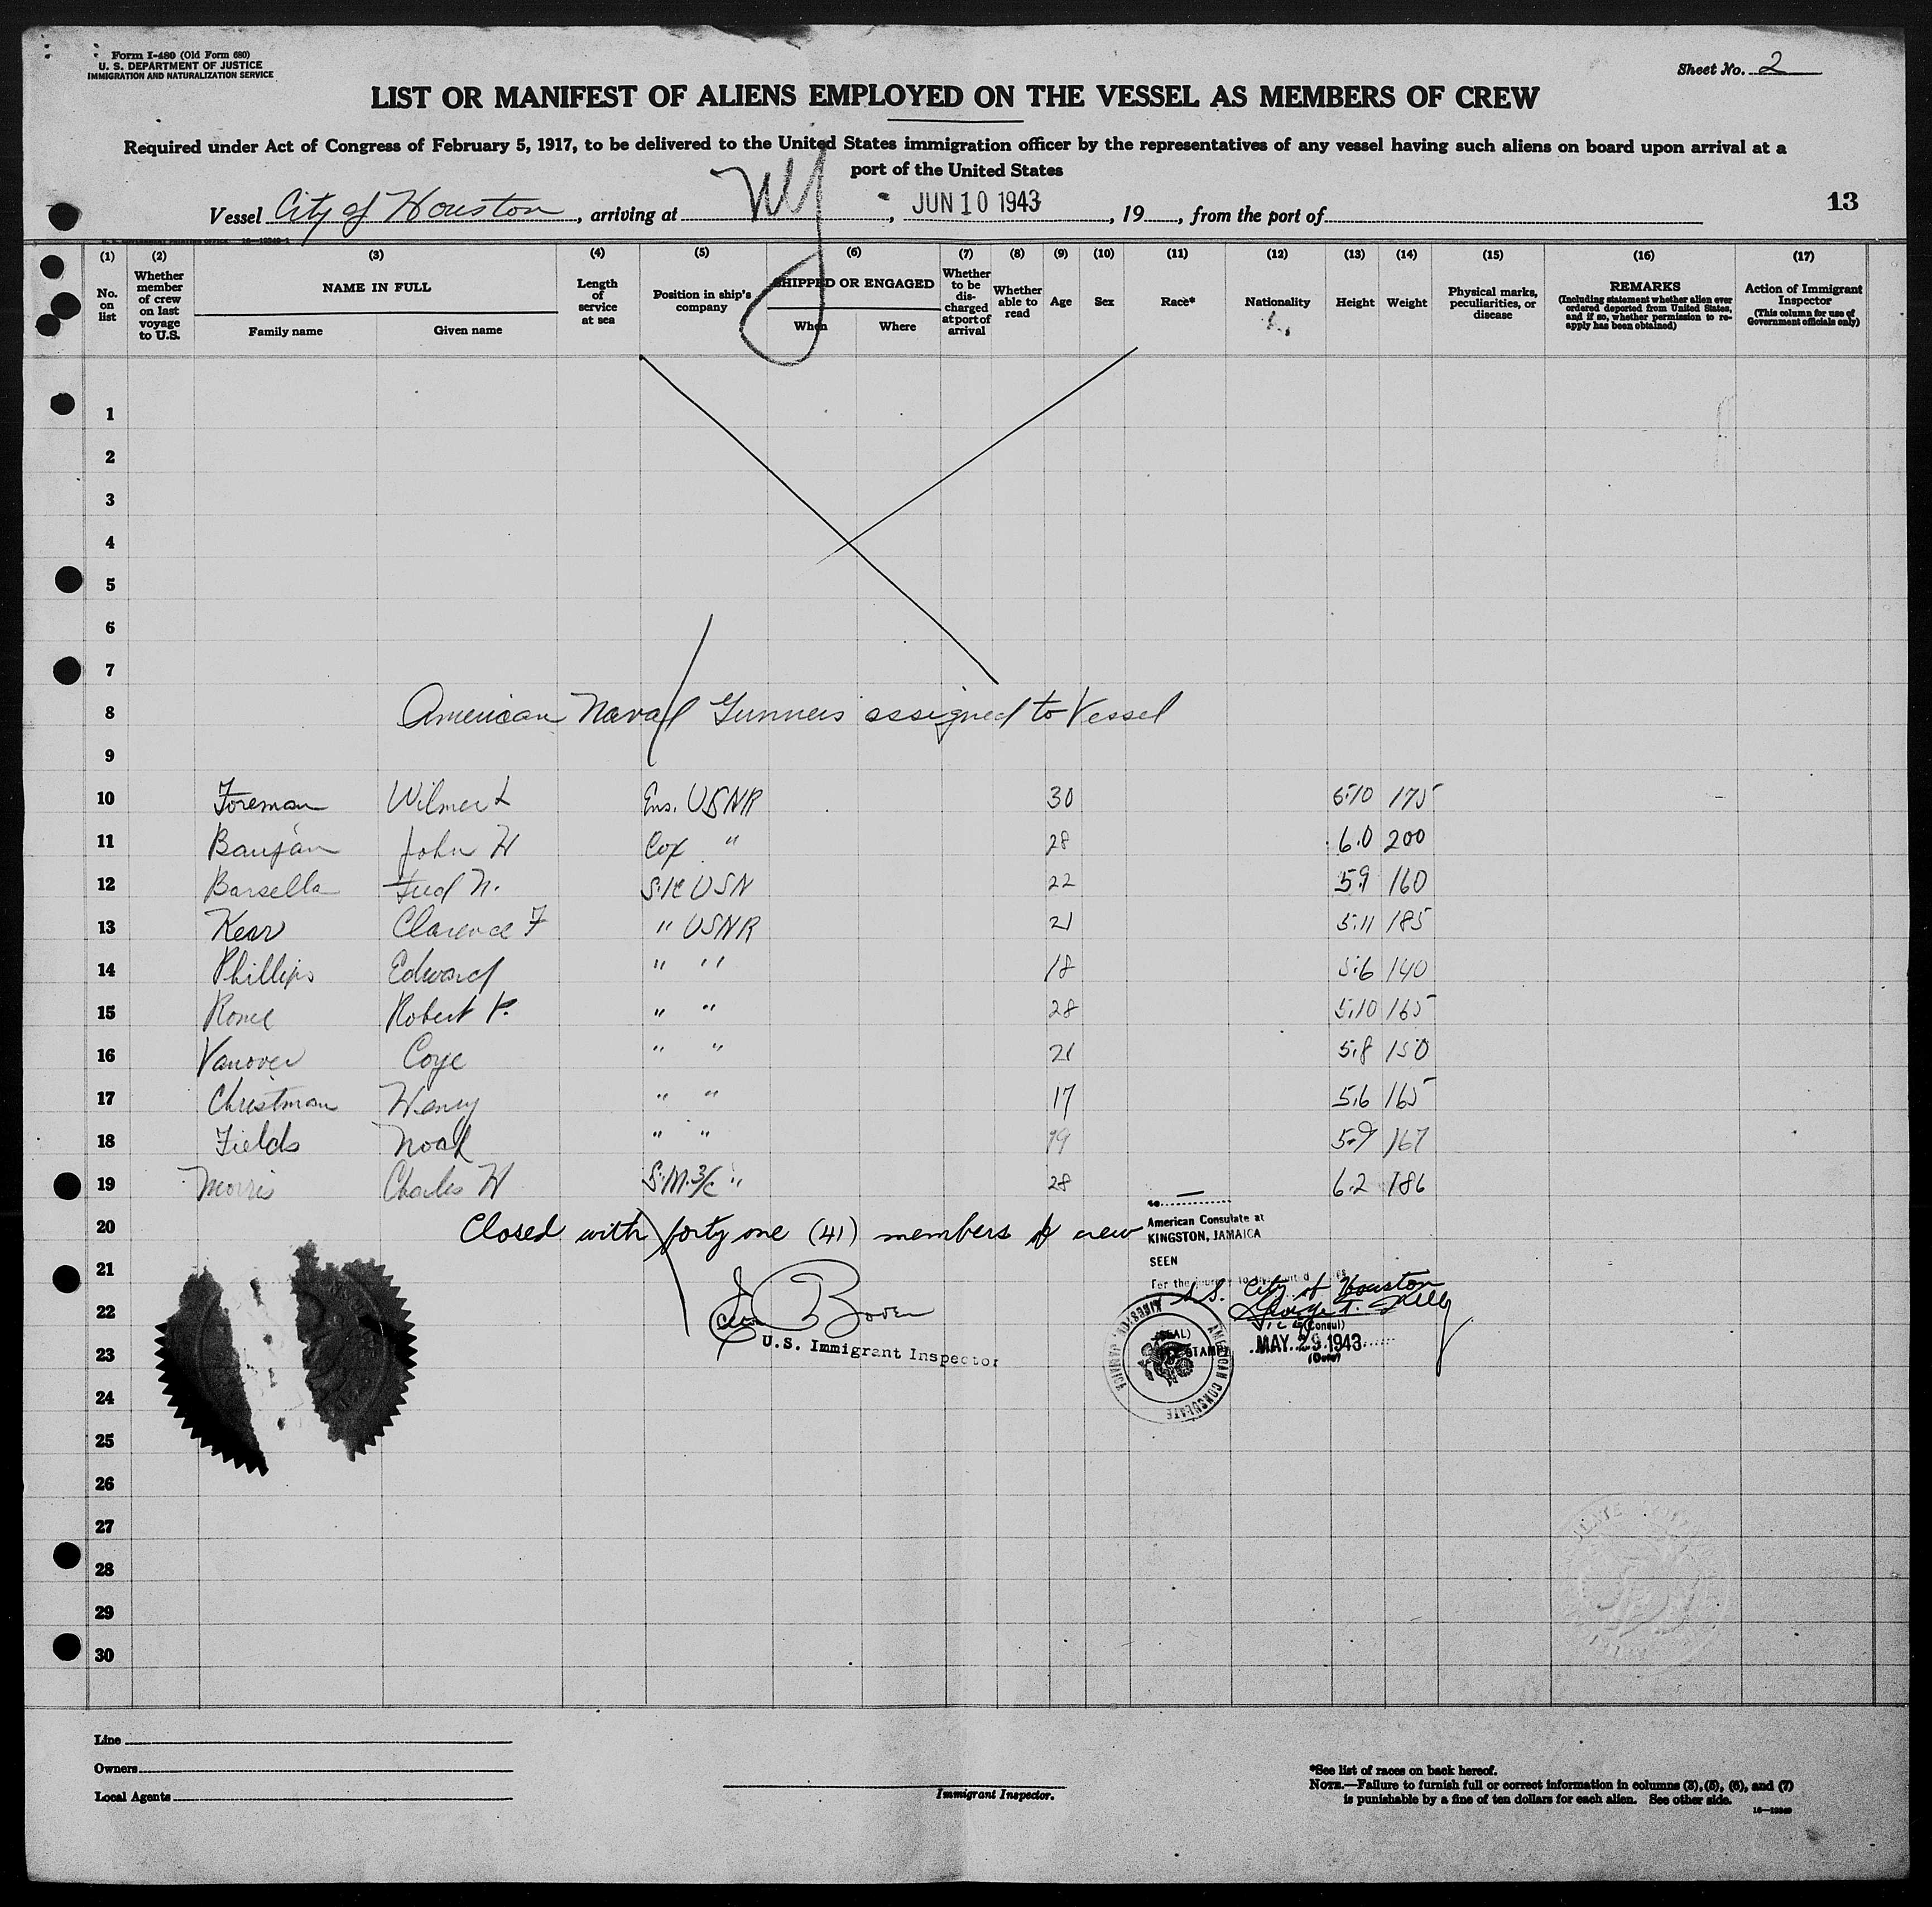 Form I-480 (Old Form 680)
U. S. DEPARTMENT OF JUSTICE
IMMIGRATION AND NATURALIZATION SERVICE
Sheet No. 2
LIST OR MANIFEST OF ALIENS EMPLOYED ON THE VESSEL AS MEMBERS OF CREW
Required under Act of Congress of February 5, 1917, to be delivered to the United States immigration officer by the representatives of any vessel having such aliens on board upon arrival at a
port of the United States
Vessel City of Houston, arriving at NY, JUN 10 1943, 19, from the port of
13
(1) (2) (3) (4) (5) (6) (7) (8) (9) (10) (11) (12) (13) (14) (15) (16) (17)
No. on list
Whether member of crew on last voyage to U.S.
NAME IN FULL
Family name Given name
Length of service at sea
Position in ship's company
SHIPPED OR ENGAGED
When Where
Whether to be discharged at port of arrival
Whether able to read
Age
Sex
Race*
Nationality
Height
Weight
Physical marks, peculiarities, or disease
REMARKS
(Including statement whether alien ever ordered deported from United States, and if so, whether permission to reapply has been obtained)
Action of Immigrant Inspector
(This column for use of Government officials only)
1
2
3
4
5
6
7
8 American Naval Gunners assigned to Vessel
9
10 Foreman Wilmer L Ens. USNR 30 5.10 175
11 John H Cox " 28 6.0 200
12 Barsella Fred N. S.1c USN 22 5.9 160
13 Kear Clarence F " USNR 21 5.11 185
14 Phillips Edward " " 18 5.6 140
15 Robert P. " " 28 5.10 165
16 Vanover Coye " " 21 5.8 150
17 Christman Henry " " 17 5.6 165
18 Fields Noah " " 19 5.9 167
19 Morris Charles H S.M. 3/c " 28 6.2 186
20 Closed with forty one (41) members of crew
No.
American Consulate at
KINGSTON, JAMAICA
SEEN
For the journey to the United States
S.S. City of Houston
George T.
Vice (Consul)
MAY 29 1943
(Date)
(SEAL)
STAMP
AMERICAN CONSULATE
KINGSTON, JAMAICA
21
22
U.S. Immigrant Inspector
23
24
25
26
27
28
29
30
Line
Owners
Local Agents
Immigrant Inspector.
*See list of races on back hereof.
NOTE.—Failure to furnish full or correct information in columns (3), (5), (6), and (7)
is punishable by a fine of ten dollars for each alien. See other side.